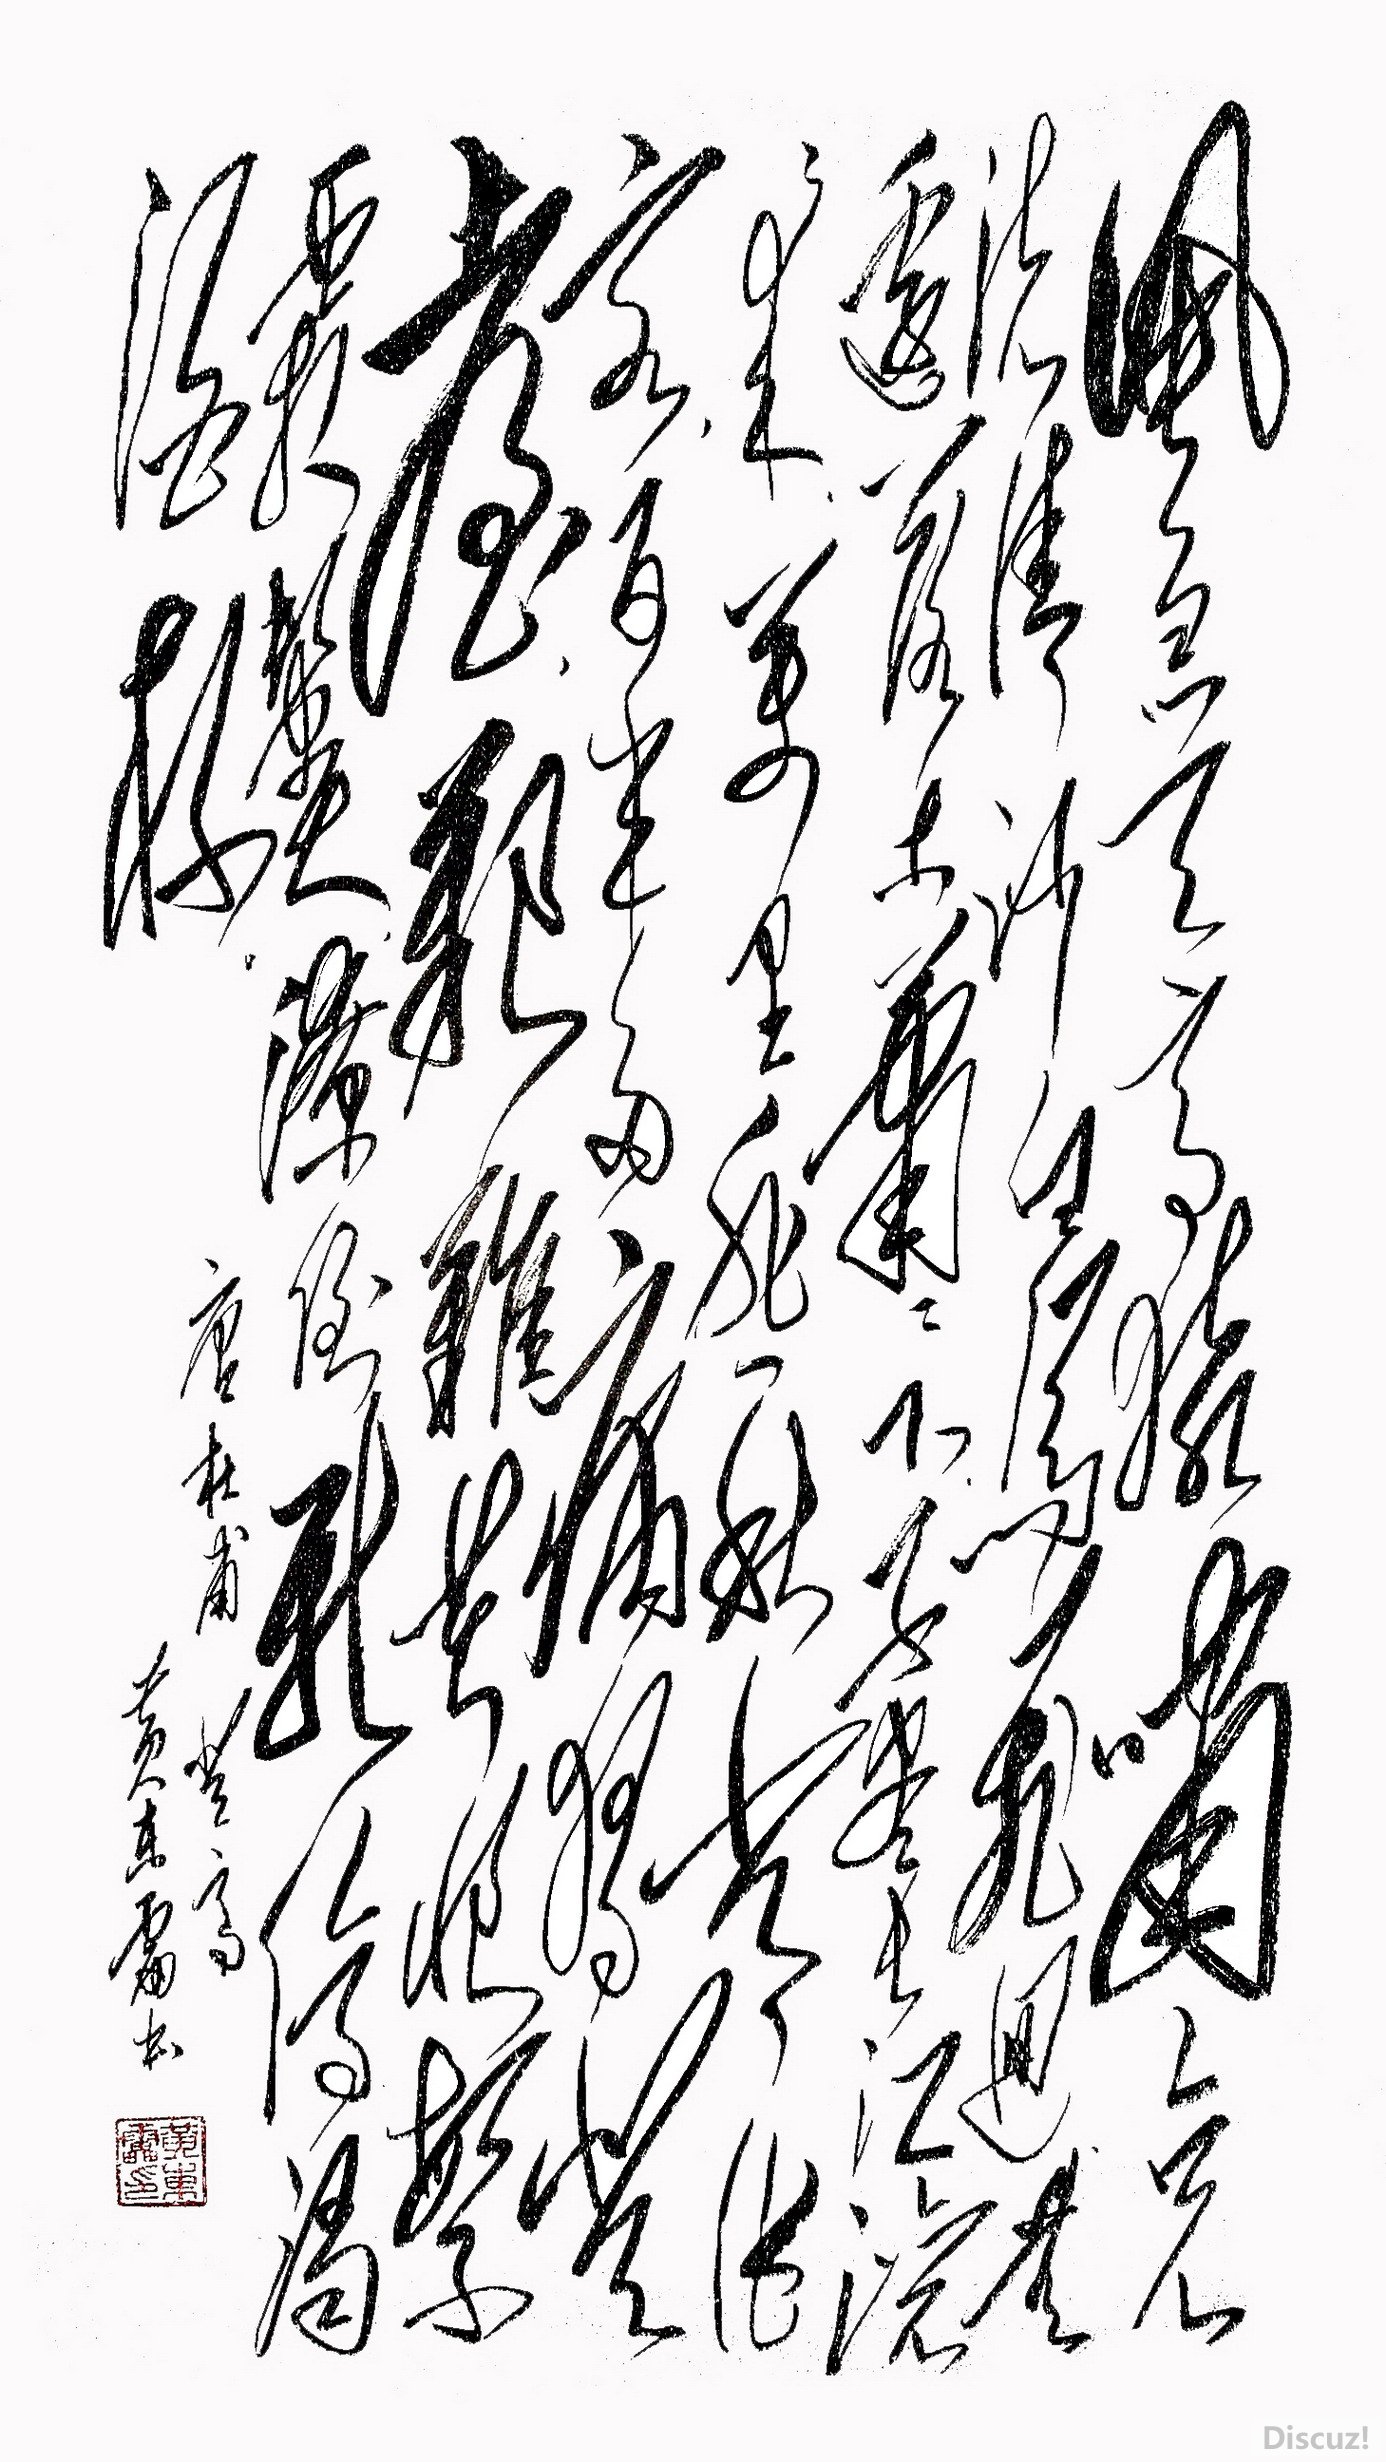 風急天高猿嘯哀
渚清沙白鳥飛迴無
邊落木蕭〻下不盡長江滾
〻来萬里悲秋常作
客百年多病獨登
臺艱難苦恨繁
霜鬢潦倒新停濁
酒杯
唐杜甫登高
黄東雷书
Discuz!